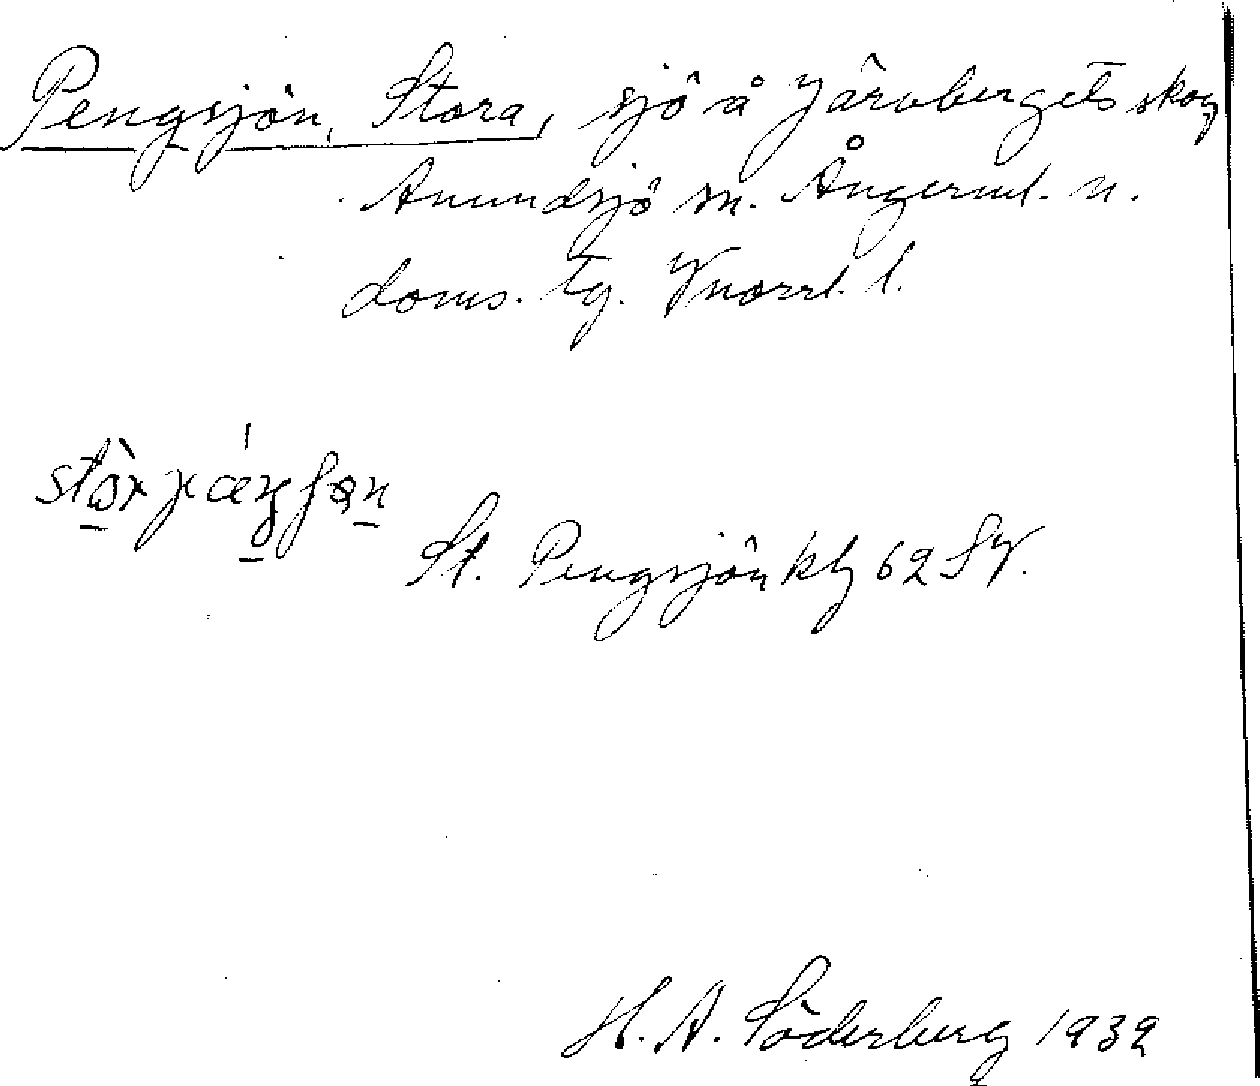 Pengsjön, Stora, sjö å Järvbergets skog
Anundsjö sn. Ångerml. n.
doms. tg. Vnorrl. l.
St. Pengsjön kbl 62 SV.
H. A. Söderberg 1932